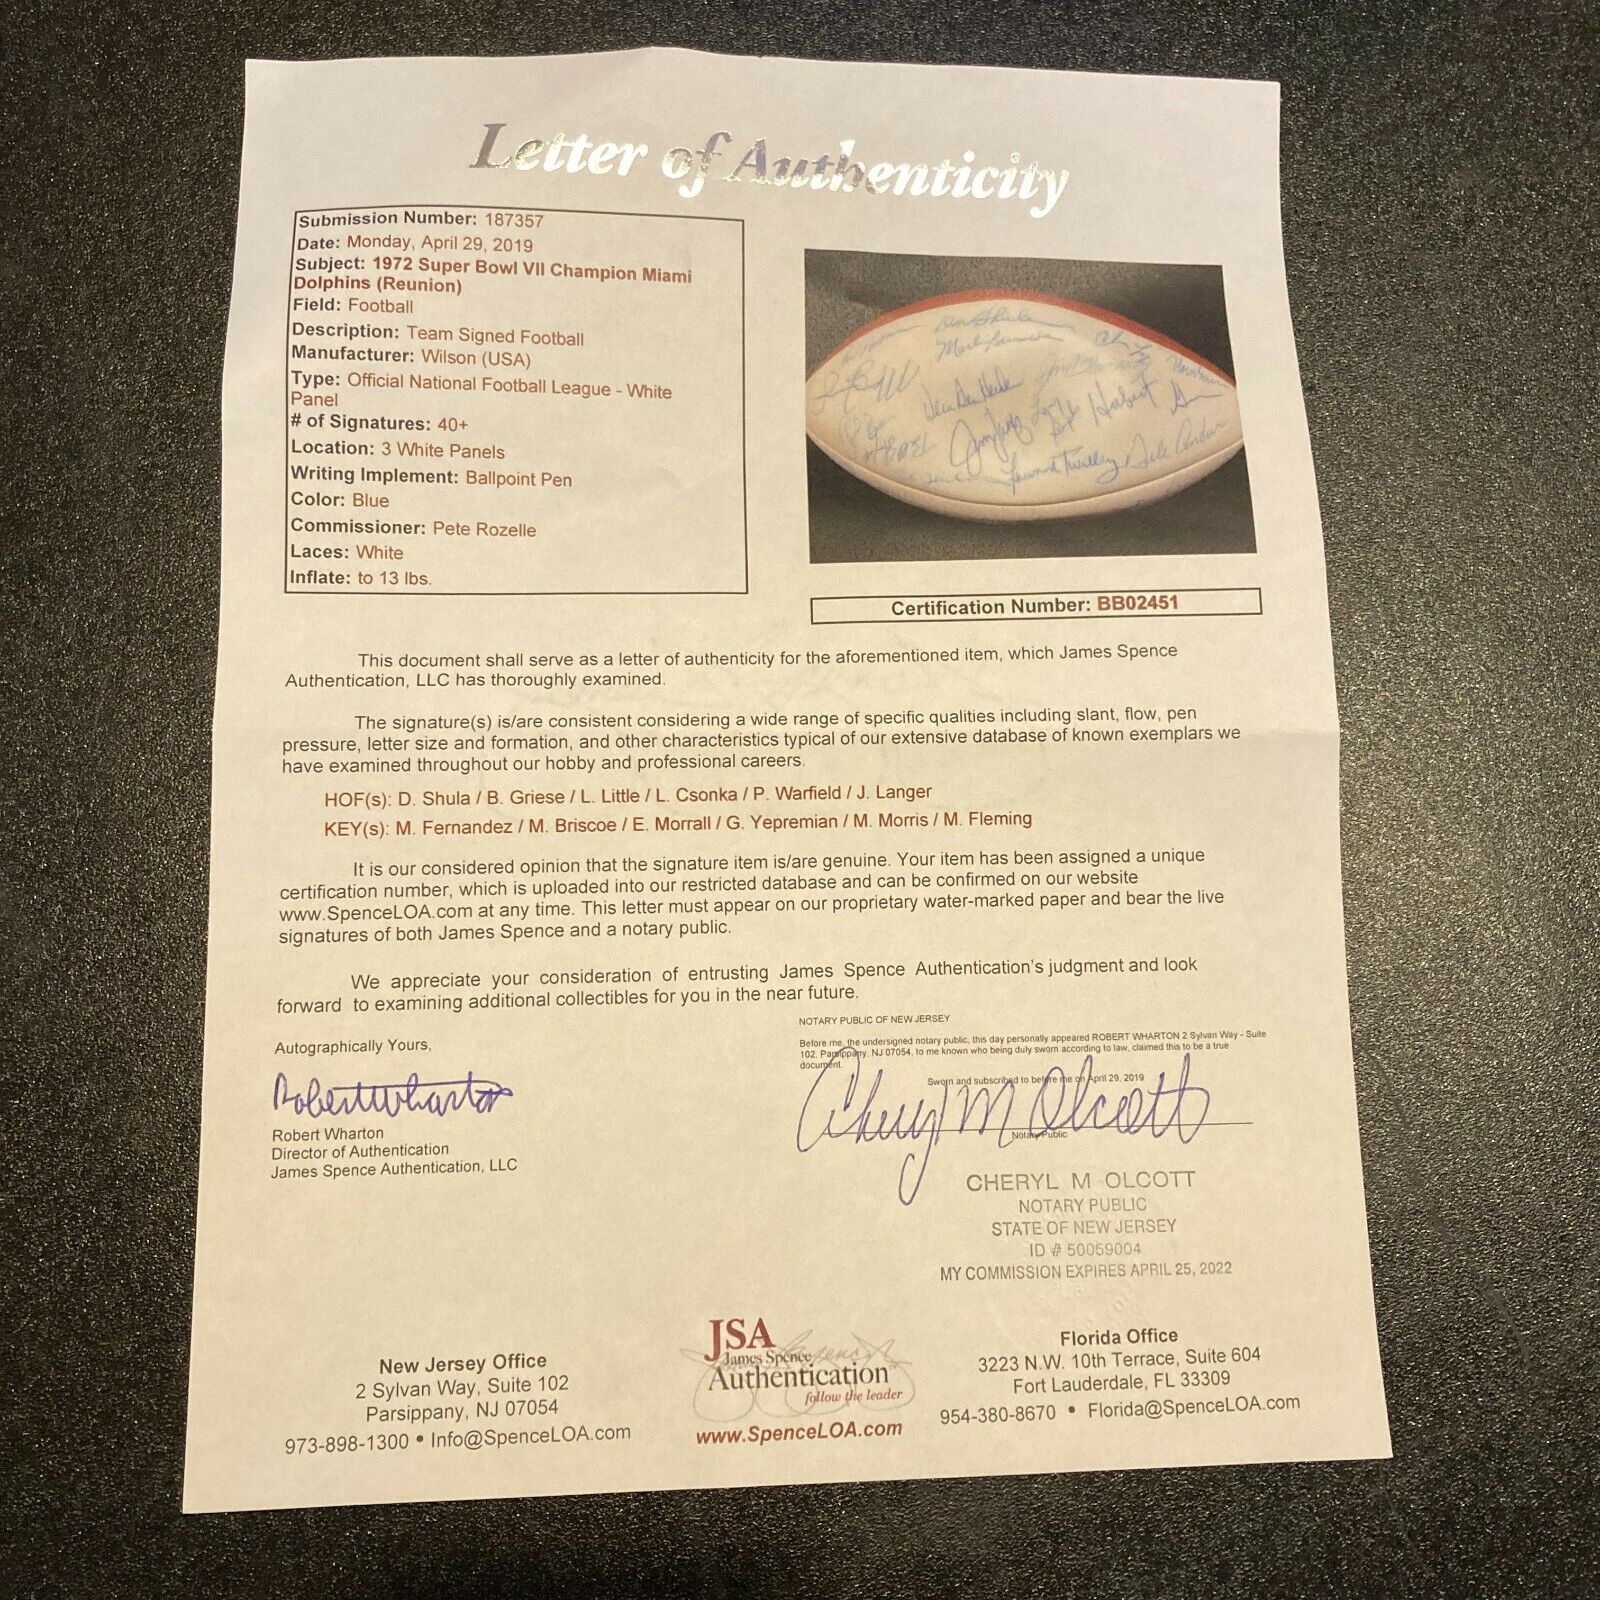 Letter of Authenticity
Submission Number: 187357
Date: Monday, April 29, 2019
Subject: 1972 Super Bowl VII Champion Miami
Dolphins (Reunion)
Field: Football
Description: Team Signed Football
Manufacturer: Wilson (USA)
Type: Official National Football League - White
Panel
# of Signatures: 40+
Location: 3 White Panels
Writing Implement: Ballpoint Pen
Color: Blue
Commissioner: Pete Rozelle
Laces: White
Inflate: to 13 lbs.
Don Shula
Jim Langer
Howard Twilley
Certification Number: BB02451
This document shall serve as a letter of authenticity for the aforementioned item, which James Spence
Authentication, LLC has thoroughly examined.
The signature(s) is/are consistent considering a wide range of specific qualities including slant, flow, pen
pressure, letter size and formation, and other characteristics typical of our extensive database of known exemplars we
have examined throughout our hobby and professional careers.
HOF(s): D. Shula / B. Griese / L. Little / L. Csonka / P. Warfield / J. Langer
KEY(s): M. Fernandez / M. Briscoe / E. Morrall / G. Yepremian / M. Morris / M. Fleming
It is our considered opinion that the signature item is/are genuine. Your item has been assigned a unique
certification number, which is uploaded into our restricted database and can be confirmed on our website
www.SpenceLOA.com at any time. This letter must appear on our proprietary water-marked paper and bear the live
signatures of both James Spence and a notary public.
We appreciate your consideration of entrusting James Spence Authentication's judgment and look
forward to examining additional collectibles for you in the near future.
Autographically Yours,
Robert Wharton
Robert Wharton
Director of Authentication
James Spence Authentication, LLC
NOTARY PUBLIC OF NEW JERSEY
Before me, the undersigned notary public, this day personally appeared ROBERT WHARTON 2 Sylvan Way - Suite
102, Parsippany, NJ 07054, to me known who being duly sworn according to law, claimed this to be a true
document.
Sworn and subscribed to before me on April 29, 2019
Cheryl M Olcott
Notary Public
CHERYL M OLCOTT
NOTARY PUBLIC
STATE OF NEW JERSEY
ID # 50059004
MY COMMISSION EXPIRES APRIL 25, 2022
New Jersey Office
2 Sylvan Way, Suite 102
Parsippany, NJ 07054
973-898-1300 • Info@SpenceLOA.com
JSA
James Spence
Authentication
follow the leader
www.SpenceLOA.com
Florida Office
3223 N.W. 10th Terrace, Suite 604
Fort Lauderdale, FL 33309
954-380-8670 • Florida@SpenceLOA.com